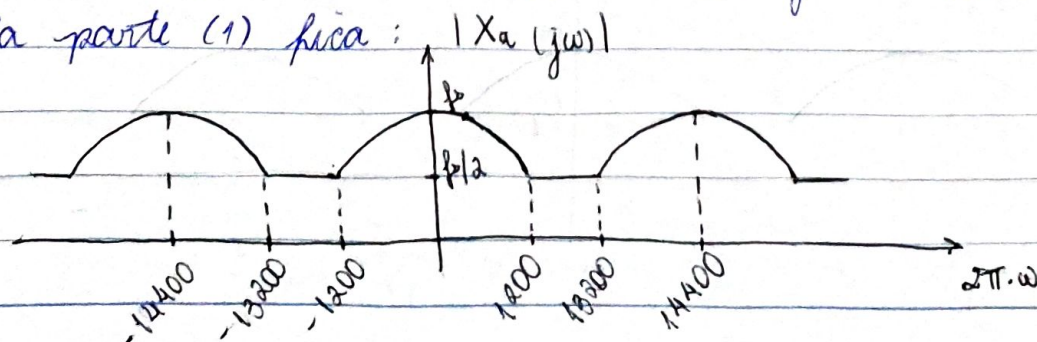 a parte (1) fica : |Xa (jω)|
fs
fs/2
-14400 -13200 -1200 1200 13200 14400 2π.ω